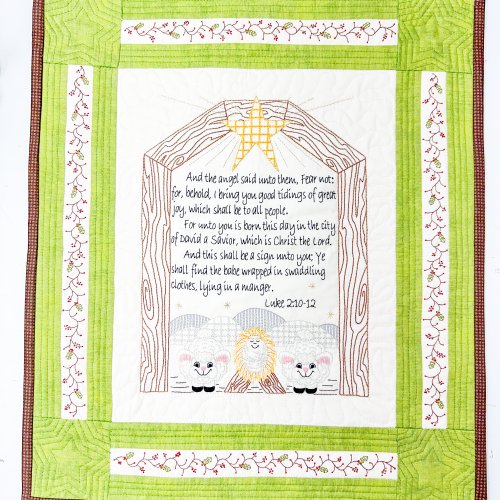 And the angel said unto them, Fear not:
for, behold, I bring you good tidings of great
joy, which shall be to all people.
For unto you is born this day in the city
of David a Savior, which is Christ the Lord.
And this shall be a sign unto you; Ye
shall find the babe wrapped in swaddling
clothes, lying in a manger.
Luke 2:10-12